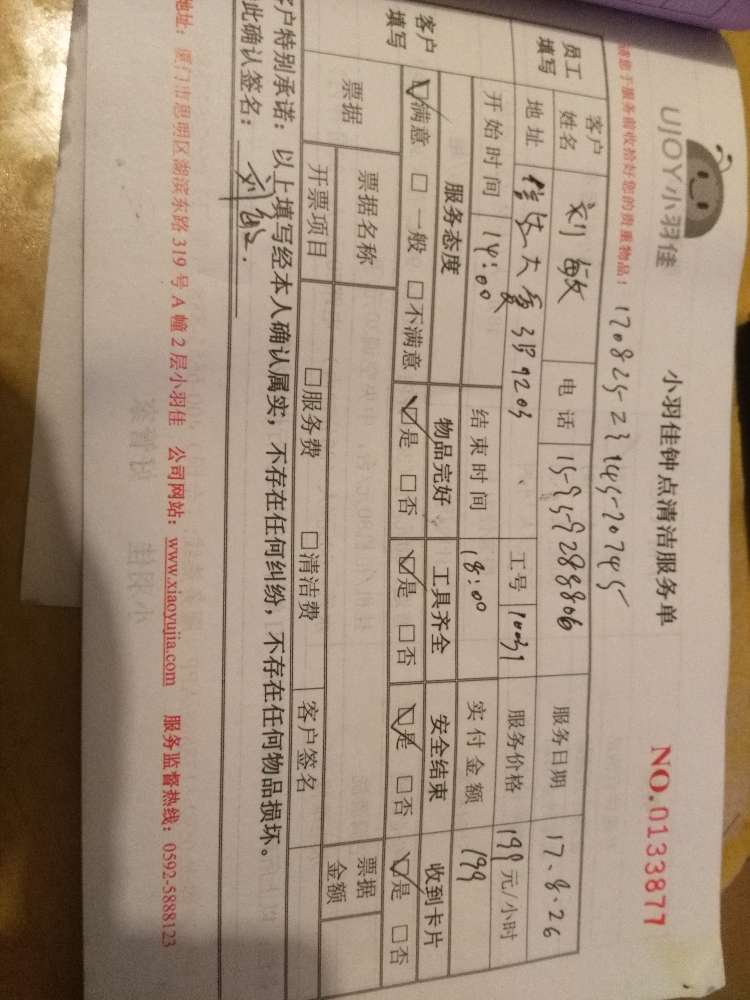 UJOY小羽佳
小羽佳钟点清洁服务单
NO.0133877
请您于服务前收拾好您的贵重物品！
170825-23145-70745
员工填写
客户姓名 刘敏 电话 服务日期 17.8.26
地址 工号 服务价格 199 元/小时
开始时间 14:00 结束时间 18:00 实付金额 199
客户填写
服务态度 物品完好 工具齐全 安全结束 收到卡片
☑满意 □一般 □不满意 ☑是 □否 ☑是 □否 ☑是 □否 ☑是 □否
票据 票据名称 票据金额
开票项目 □服务费 □清洁费 客户签名
客户特别承诺：以上填写经本人确认属实，不存在任何纠纷，不存在任何物品损坏。
此确认签名： 刘敏
地址：厦门市思明区湖滨东路 319 号 A 幢 2 层小羽佳 公司网站：www.xiaoyujia.com 服务监督热线：0592-5888123